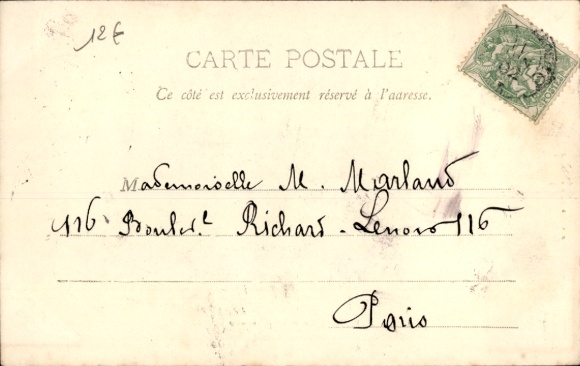 12€
CARTE POSTALE
Ce côté est exclusivement réservé à l'adresse.
Mademoiselle M. Marland
116 Boulev.t Richard-Lenoir 116
Paris